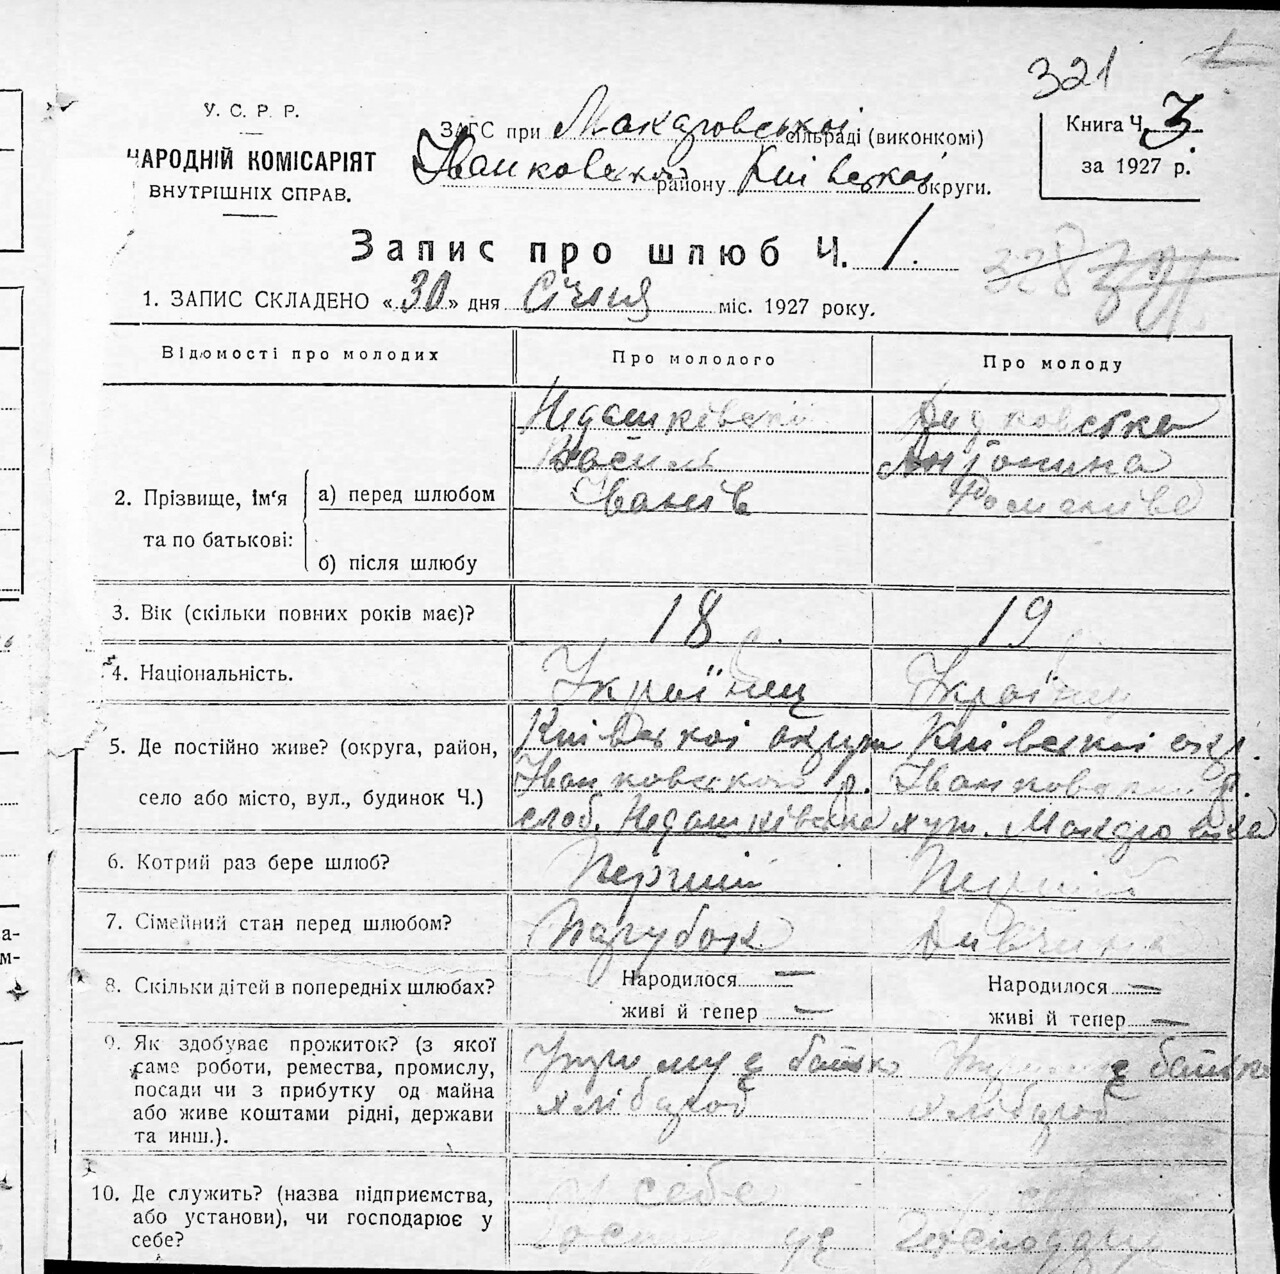 321
У. С. Р. Р.
НАРОДНІЙ КОМІСАРІЯТ
ВНУТРІШНІХ СПРАВ.
ЗАГС при Макаровської сільраді (виконкомі)
Іванковской району Київської округи.
Книга Ч. 3
за 1927 р.
Запис про шлюб Ч. 1.
328
1. ЗАПИС СКЛАДЕНО «30» дня Січня міс. 1927 року.
Відомості про молодих Про молодого Про молоду
Недашківскі Дидковська
Василь Антонина
2. Прізвище, ім'я та по батькові: а) перед шлюбом Іванів Романівна
б) після шлюбу
3. Вік (скільки повних років має)? 18 19
4. Національність. Українец Україн
5. Де постійно живе? (округа, район, Київської округи Київської окр.
село або місто, вул., будинок Ч.) Іванковского р. Іванковского р.
слоб. Недашківска хут. Макаровка
6. Котрий раз бере шлюб? Перший Перший
7. Сімейний стан перед шлюбом? Парубок Дивчина
8. Скільки дітей в попередніх шлюбах? Народилося — Народилося —
живі й тепер — живі й тепер —
9. Як здобуває прожиток? (з якої саме роботи, ремества, промислу, посади чи з прибутку од майна або живе коштами рідні, держави та инш.).
батько батько
хлібароб хлібароб
10. Де служить? (назва підприємства, або установи), чи господарює у себе?
У себе У себе
Господарує